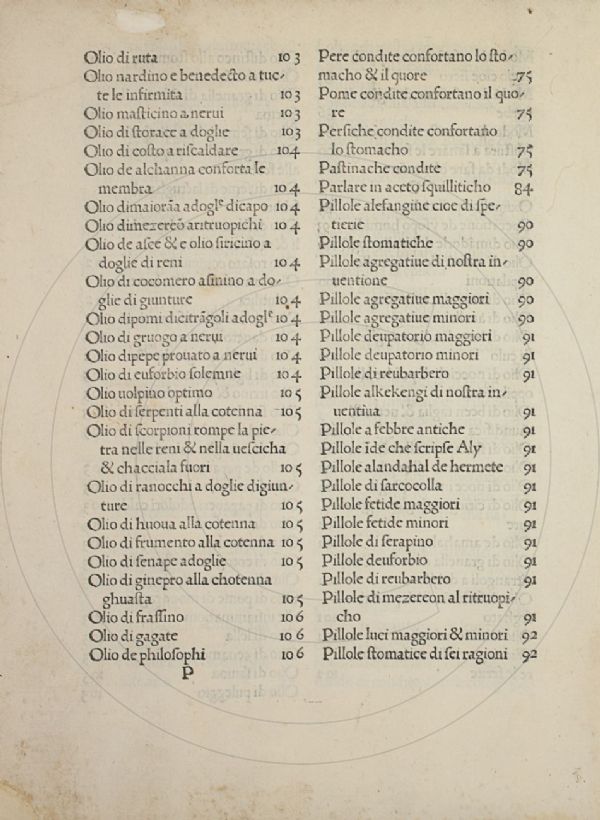 Olio di ruta 103
Olio nardino e benedecto a tuc-
te le infirmita 103
Olio masticino a nerui 103
Olio di storace a doglie 103
Olio di costo a riscaldare 104
Olio de alchanna conforta le
membra 104
Olio dimaiorāa adoglᵉ dicapo 104
Olio dimezereō aritruopichi 104
Olio de asce & e olio siricino a
doglie di reni 104
Olio di cocomero asinino a do-
glie di giunture 104
Olio dipomi dicitrāgoli adoglᵉ 104
Olio di gruogo a nerui 104
Olio dipepe prouato a nerui 104
Olio di euforbio solemne 104
Olio uolpino optimo 105
Olio di serpenti alla cotenna 105
Olio di scorpioni rompe la pie-
tra nelle reni & nella uescicha
& chacciala fuori 105
Olio di ranocchi a doglie digiun-
ture 105
Olio di huoua alla cotenna 105
Olio di frumento alla cotenna 105
Olio di senape adoglie 105
Olio di ginepro alla chotenna
ghuasta 105
Olio di frassino 106
Olio di gagate 106
Olio de philosophi 106
P
Pere condite confortano lo sto-
macho & il quore 75
Pome condite confortano il quo-
re 75
Persiche condite confortano
lo stomacho 75
Pastinache condite 75
Parlare in aceto squilliticho 84
Pillole alefangine cioe di spe-
tierie 90
Pillole stomatiche 90
Pillole agregatiue di nostra in-
uentione 90
Pillole agregatiue maggiori 90
Pillole agregatiue minori 90
Pillole deupatorio maggiori 91
Pillole deupatorio minori 91
Pillole di reubarbero 91
Pillole alkekengi di nostra in-
uentiua 91
Pillole a febbre antiche 91
Pillole īde che scripse Aly 91
Pillole alandahal de hermete 91
Pillole di sarcocolla 91
Pillole fetide maggiori 91
Pillole fetide minori 91
Pillole di serapino 91
Pillole deuforbio 91
Pillole di reubarbero 91
Pillole di mezereon al ritruopi-
cho 91
Pillole luci maggiori & minori 92
Pillole stomatice di sei ragioni 92